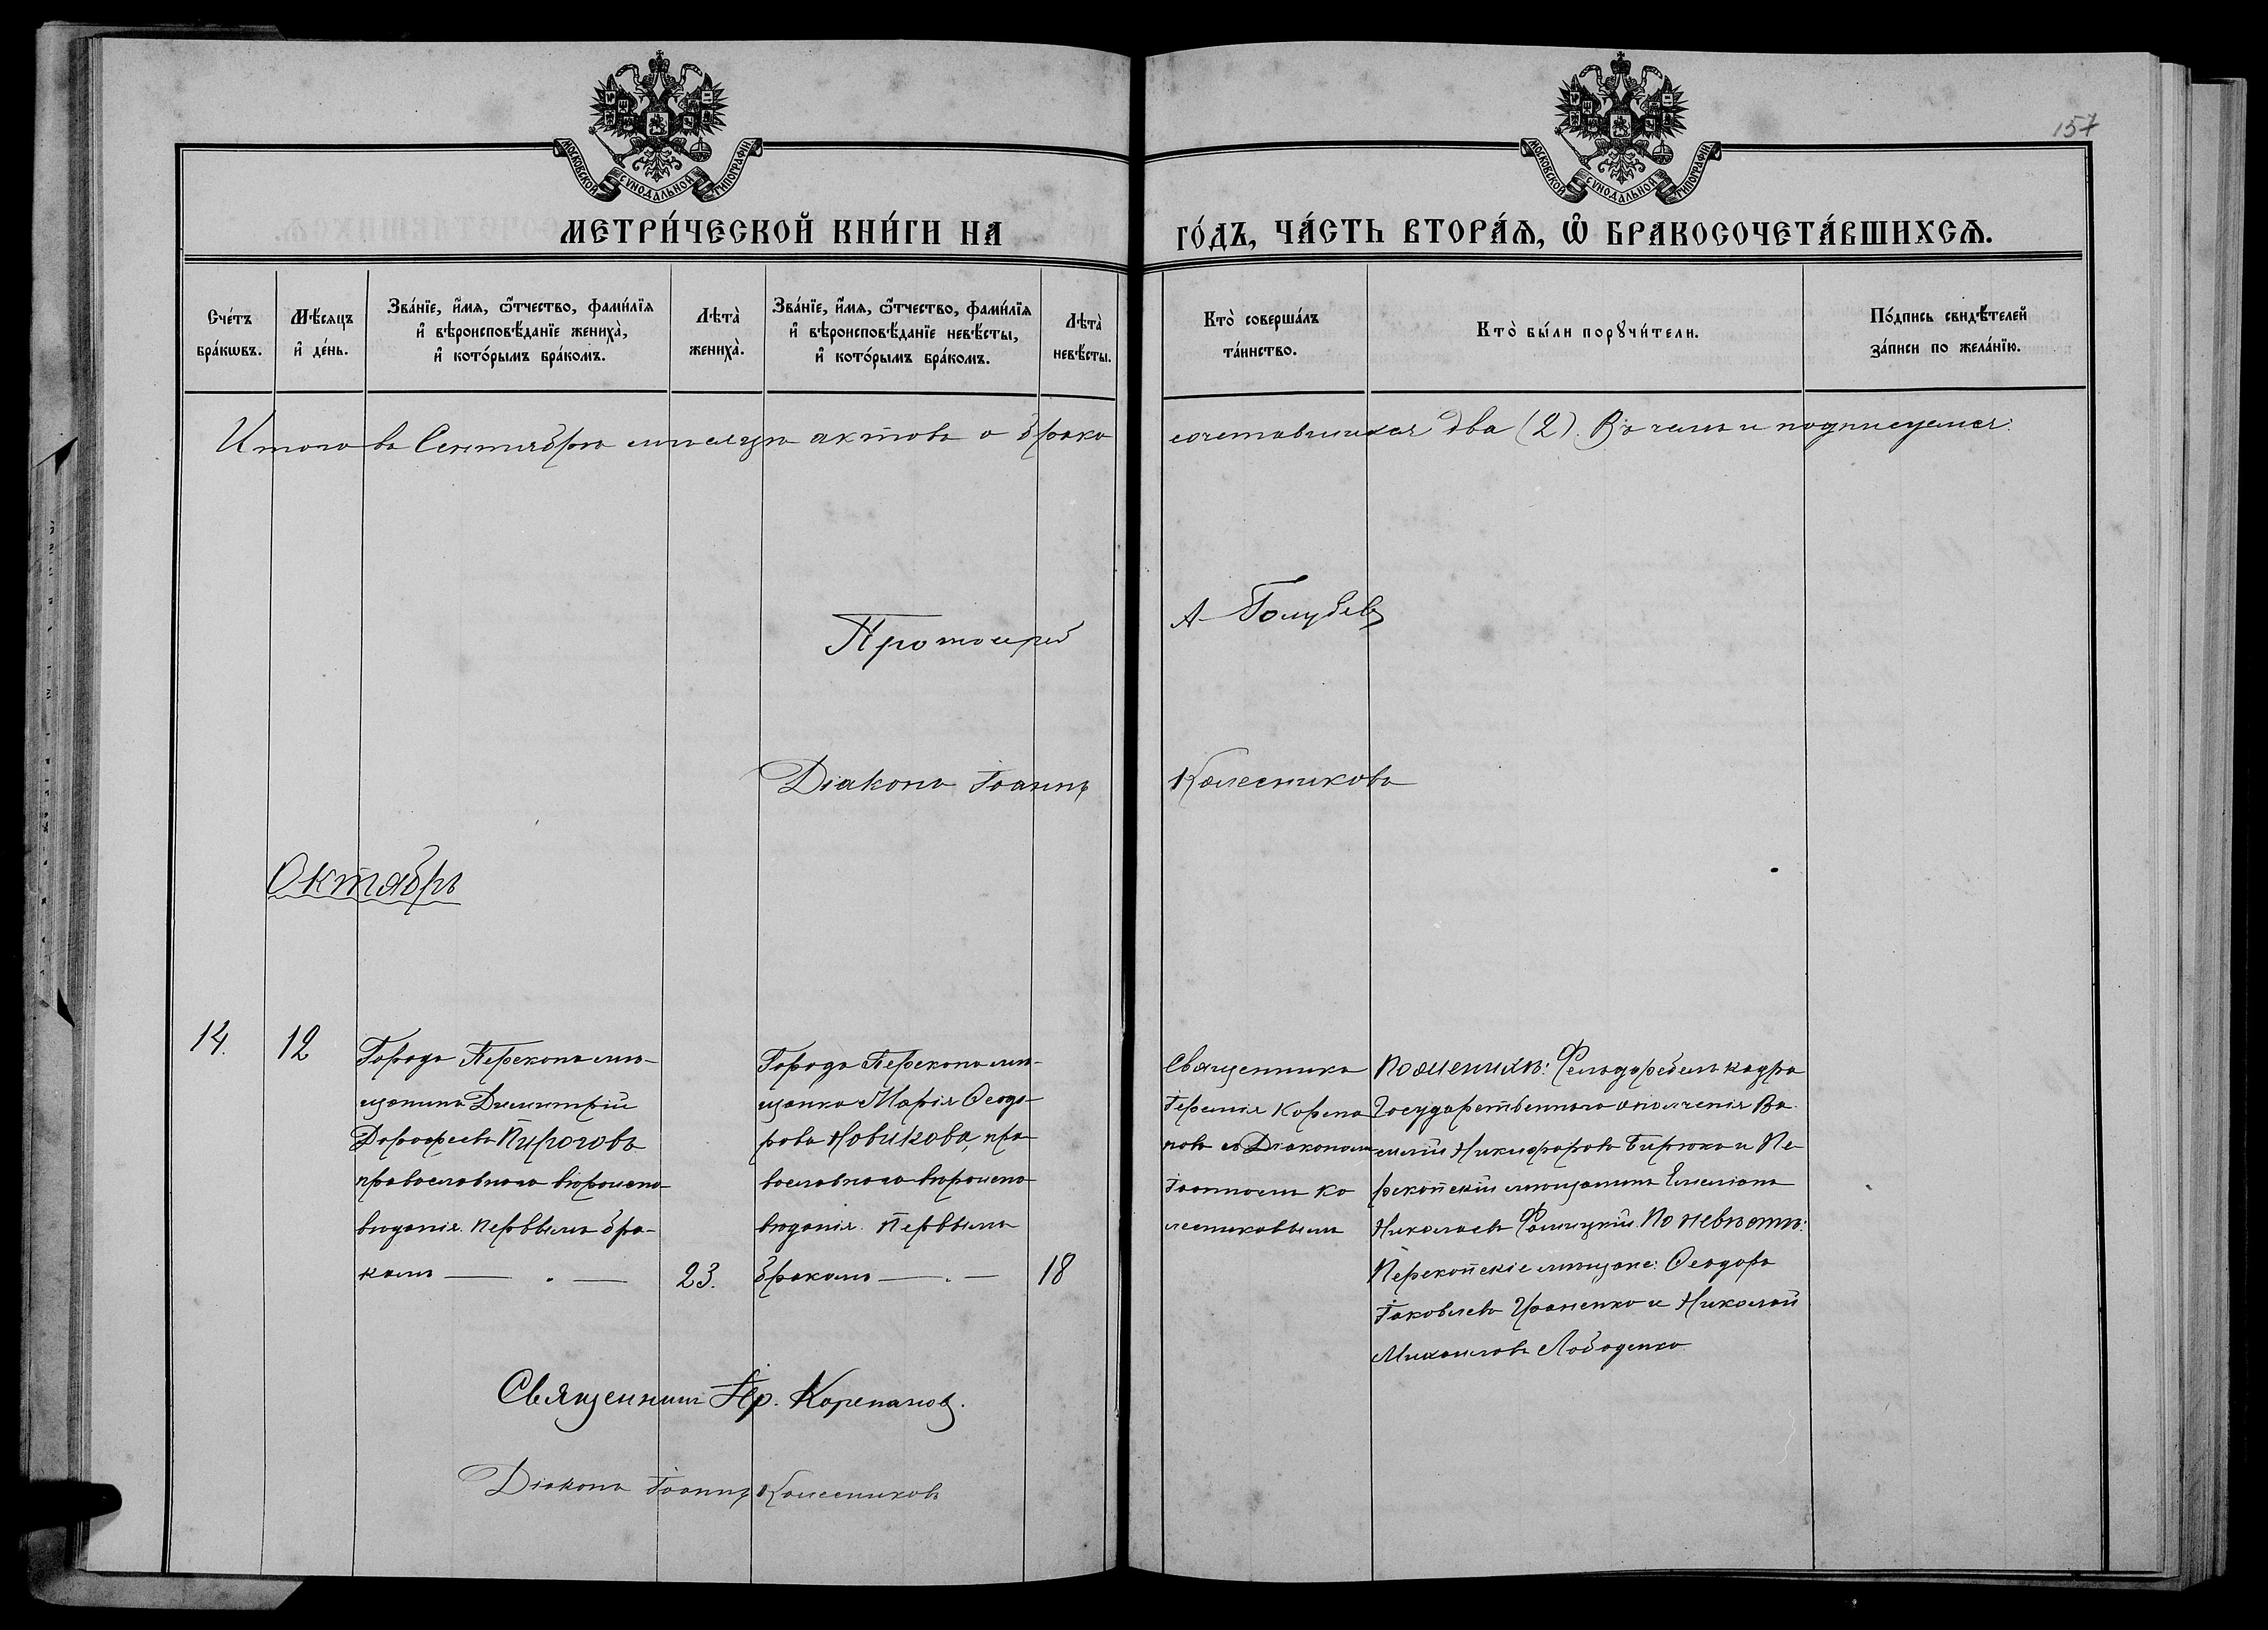 157
МОСКОВСКОЙ СѴНОДАЛЬНОЙ ТИПОГРАФІИ
МОСКОВСКОЙ СѴНОДАЛЬНОЙ ТИПОГРАФІИ
МЕТРИ́ЧЕСКОЙ КНИ́ГИ НА ГО́ДЪ, ЧА́СТЬ ВТОРА́Ѧ, Ѡ҆ БРАКОСОЧЕТА́ВШИХСѦ.
Сче́тъ
бра́кѡвъ.
Мѣ́сяцъ
и҆ де́нь.
Зва́нїе, и҆́мя, ѻ҆́тчество, фами́лїя
и҆ вѣроисповѣ́данїе жениха̀,
и҆ кото́рымъ бра́комъ.
Лѣта̀
жениха̀.
Зва́нїе, и҆́мя, ѻ҆́тчество, фами́лїя
и҆ вѣроисповѣ́данїе невѣ́сты,
и҆ кото́рымъ бра́комъ.
Лѣта̀
невѣ́сты.
Кто̀ соверша́лъ
та́инство.
Кто̀ бы́ли порꙋчи́тели.
По́дпись свидѣ́телей
за́писи по жела́нїю.
Итого въ Сентябрѣ мѣсяцѣ актовъ о брако сочетавшихся два (2). Въ чемъ и подписуемся:
Протоіерей А Голубевъ
Діаконъ Іоаннъ Колесниковъ
Октябрь
14.
12
Города Перекопа мѣ-
щанинъ Димитрій
Дорофеевъ Пироговъ
православнаго вѣроиспо-
вѣданія. первымъ бра-
комъ — . —
23.
Города Перекопа мѣ-
щанка Марія Ѳеодо-
рова Новикова, пра-
вославнаго вѣроиспо
вѣданія. Первымъ
бракомъ — . —
18
Священникъ
Іеремія Корепа
новъ съ Діакономъ
Іоанномъ Ко
лесниковымъ
По женихѣ: Фельдфебель кадра
Государственнаго ополченія Ва
силій Никифоровъ Бирюко и Пе-
рекопскій мѣщанинъ Емеліанъ
Николаевъ По невѣстѣ:
Перекопскіе мѣщане: Ѳеодоръ
Іаковлевъ Иваненко и Николай
Михаиловъ Лободенко
Священникъ Іер. Корепановъ.
Діаконъ Іоаннъ Колесниковъ